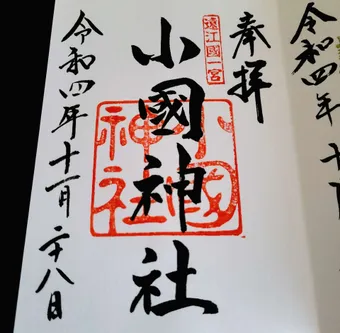 令和四年十
奉拝
遠江國一宮
小國神社
小國神社
令和四年十一月二十八日